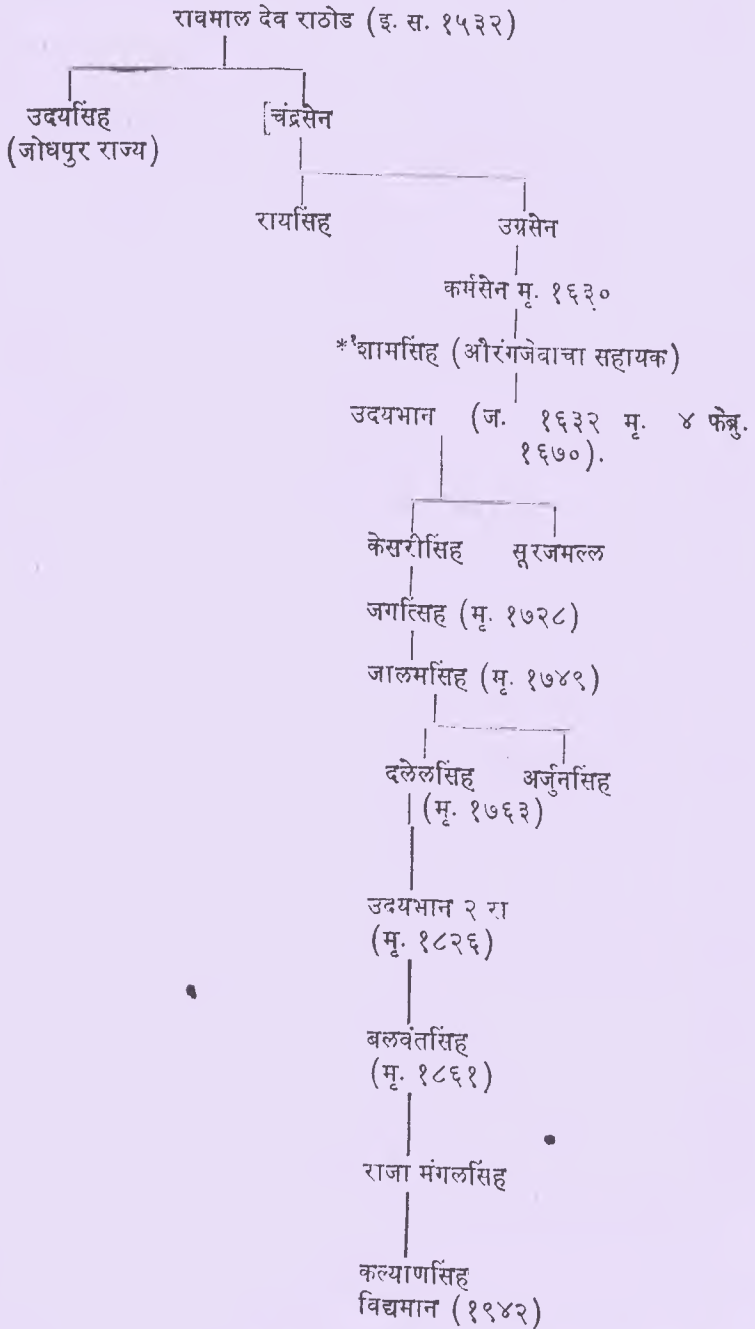 रावमाल देव राठोड (इ. स. १५३२)
उदयसिंह [चंद्रसेन
(जोधपुर राज्य)
रायसिंह उग्रसेन
कर्मसेन मृ. १६३०
*'शामसिंह (औरंगजेबाचा सहायक)
उदयभान (ज. १६३२ मृ. ४ फेब्रु.
१६७०).
केसरीसिंह सूरजमल्ल
जगत्सिंह (मृ. १७२८)
जालमसिंह (मृ. १७४९)
दलेलसिंह अर्जुनसिंह
(मृ. १७६३)
उदयभान २ रा
(मृ. १८२६)
बलवंतसिंह
(मृ. १८६१)
राजा मंगलसिंह
कल्याणसिंह
विद्यमान (१९४२)